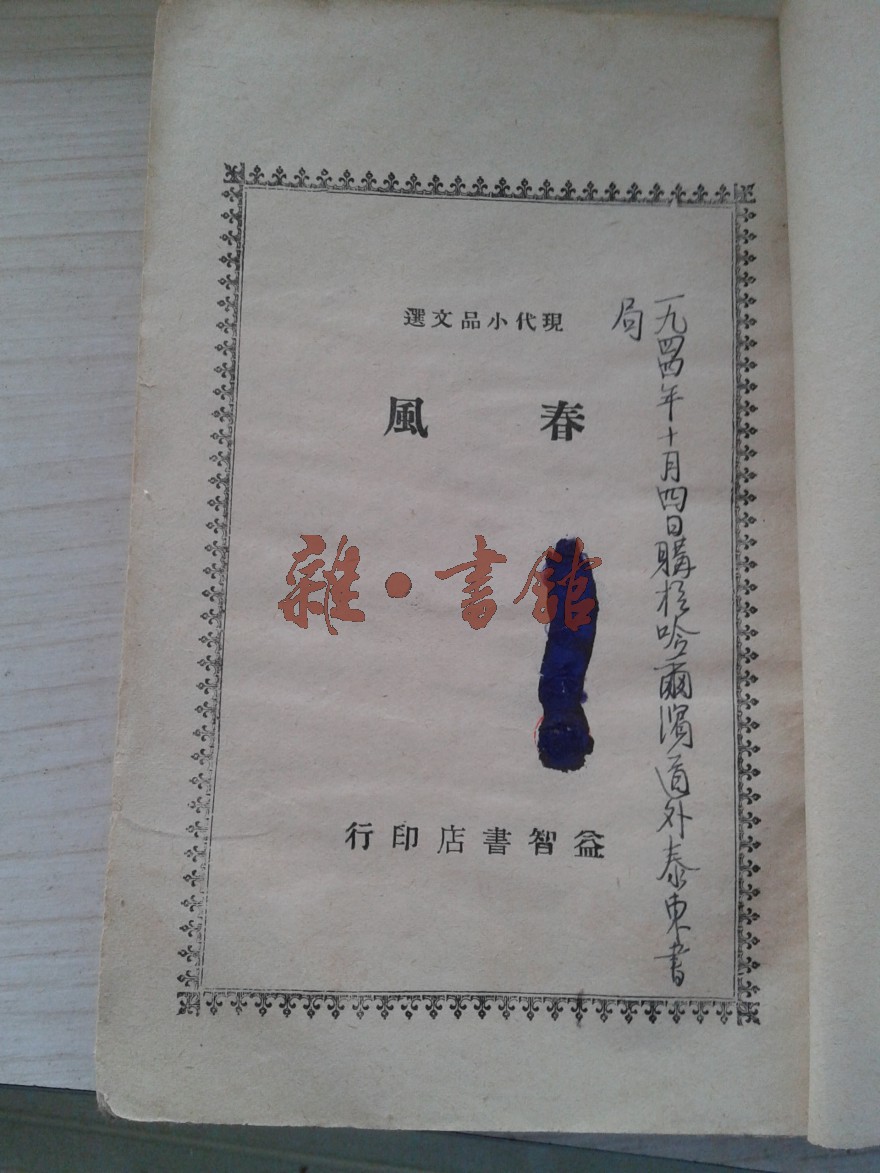 現代小品文選
春風
益智書店印行
一九四四年十月四日購於哈爾濱道外泰東書
局
雜·書館